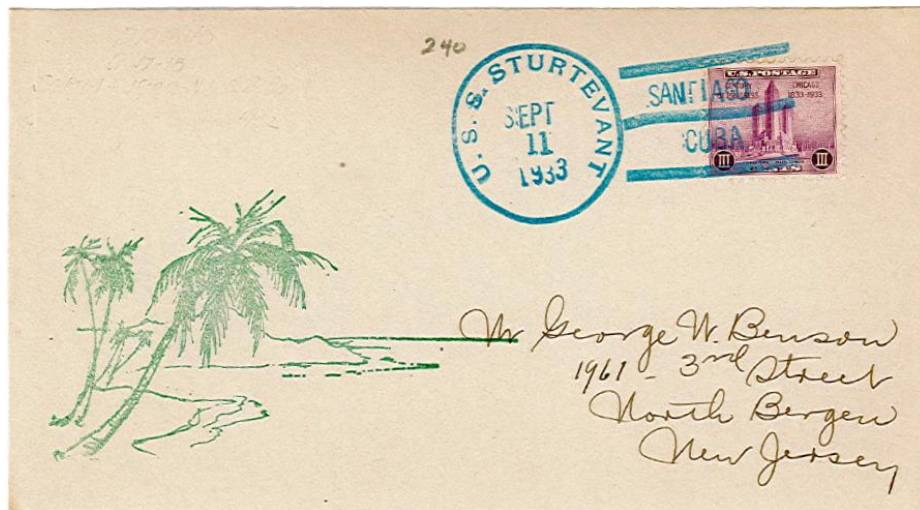 240
U.S.S. STURTEVANT
SEPT
11
1933
SANTIAGO
CUBA
U.S. POSTAGE
CHICAGO
1833-1933
III III
Mr George W. Benson
1961 - 3rd Street
North Bergen
New Jersey